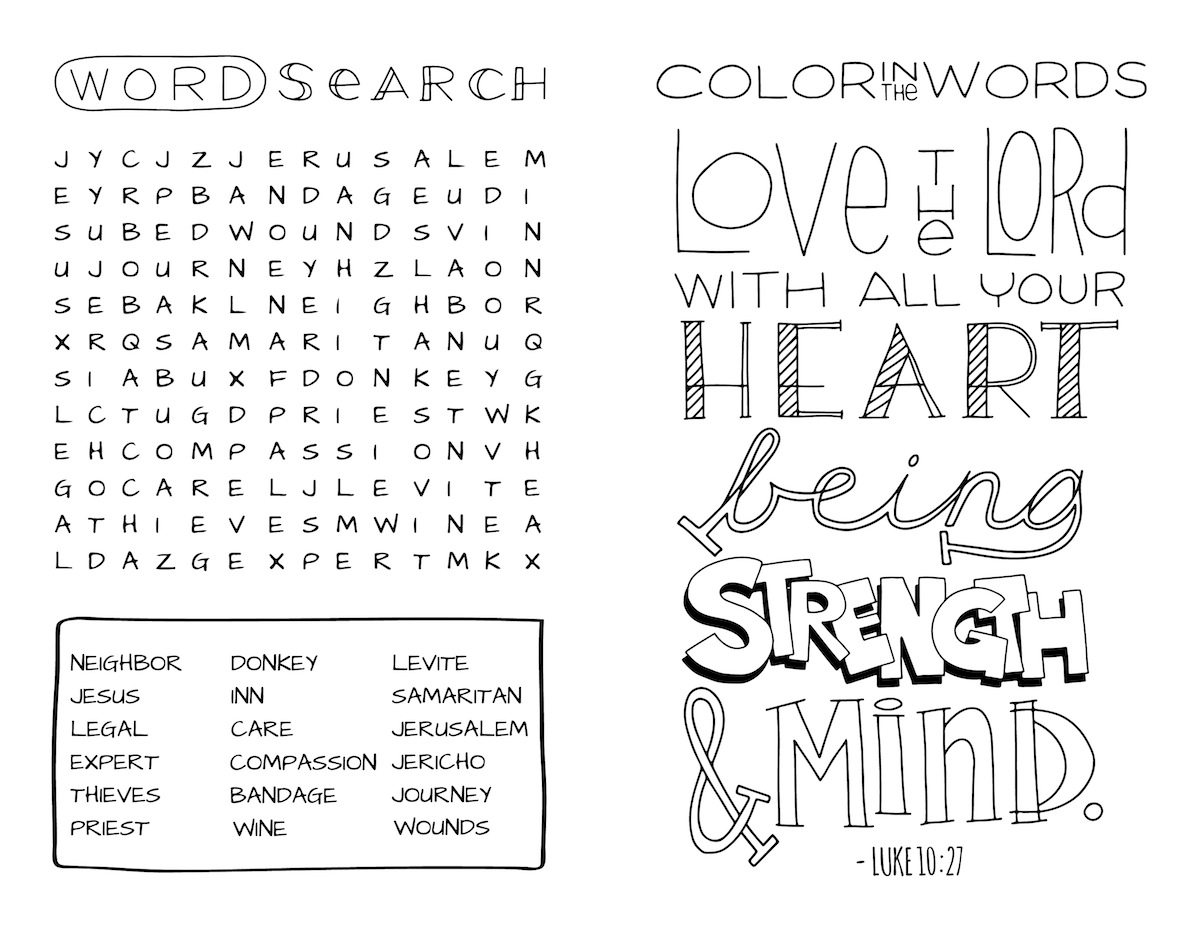 WORD SEARCH
J Y C J Z J E R U S A L E M
E Y R P B A N D A G E U D I
S U B E D W O U N D S V I N
U J O U R N E Y H Z L A O N
S E B A K L N E I G H B O R
X R Q S A M A R I T A N U Q
S I A B U X F D O N K E Y G
L C T U G D P R I E S T W K
E H C O M P A S S I O N V H
G O C A R E L J L E V I T E
A T H I E V E S M W I N E A
L D A Z G E X P E R T M K X
NEIGHBOR DONKEY LEVITE
JESUS INN SAMARITAN
LEGAL CARE JERUSALEM
EXPERT COMPASSION JERICHO
THIEVES BANDAGE JOURNEY
PRIEST WINE WOUNDS
COLOR IN THE WORDS
LOVE THE LORd
WITH ALL YOUR
HEART
being
STRENGTH
& MinD.
- LUKE 10:27